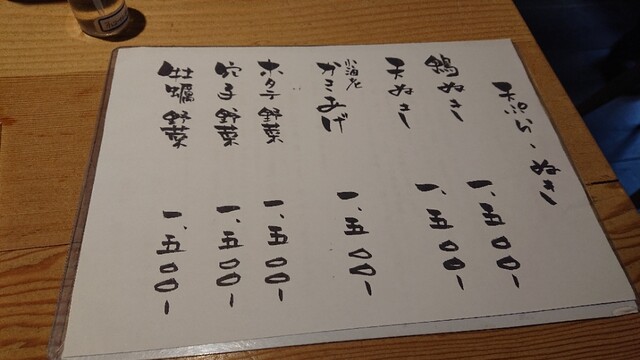 天ぷら・ぬき
鴨ぬき 一、五〇〇-
天ぬき 一、五〇〇-
小海老かきあげ 一、五〇〇-
ホタテ野菜 一、五〇〇-
穴子野菜 一、五〇〇-
牡蠣野菜 一、五〇〇-